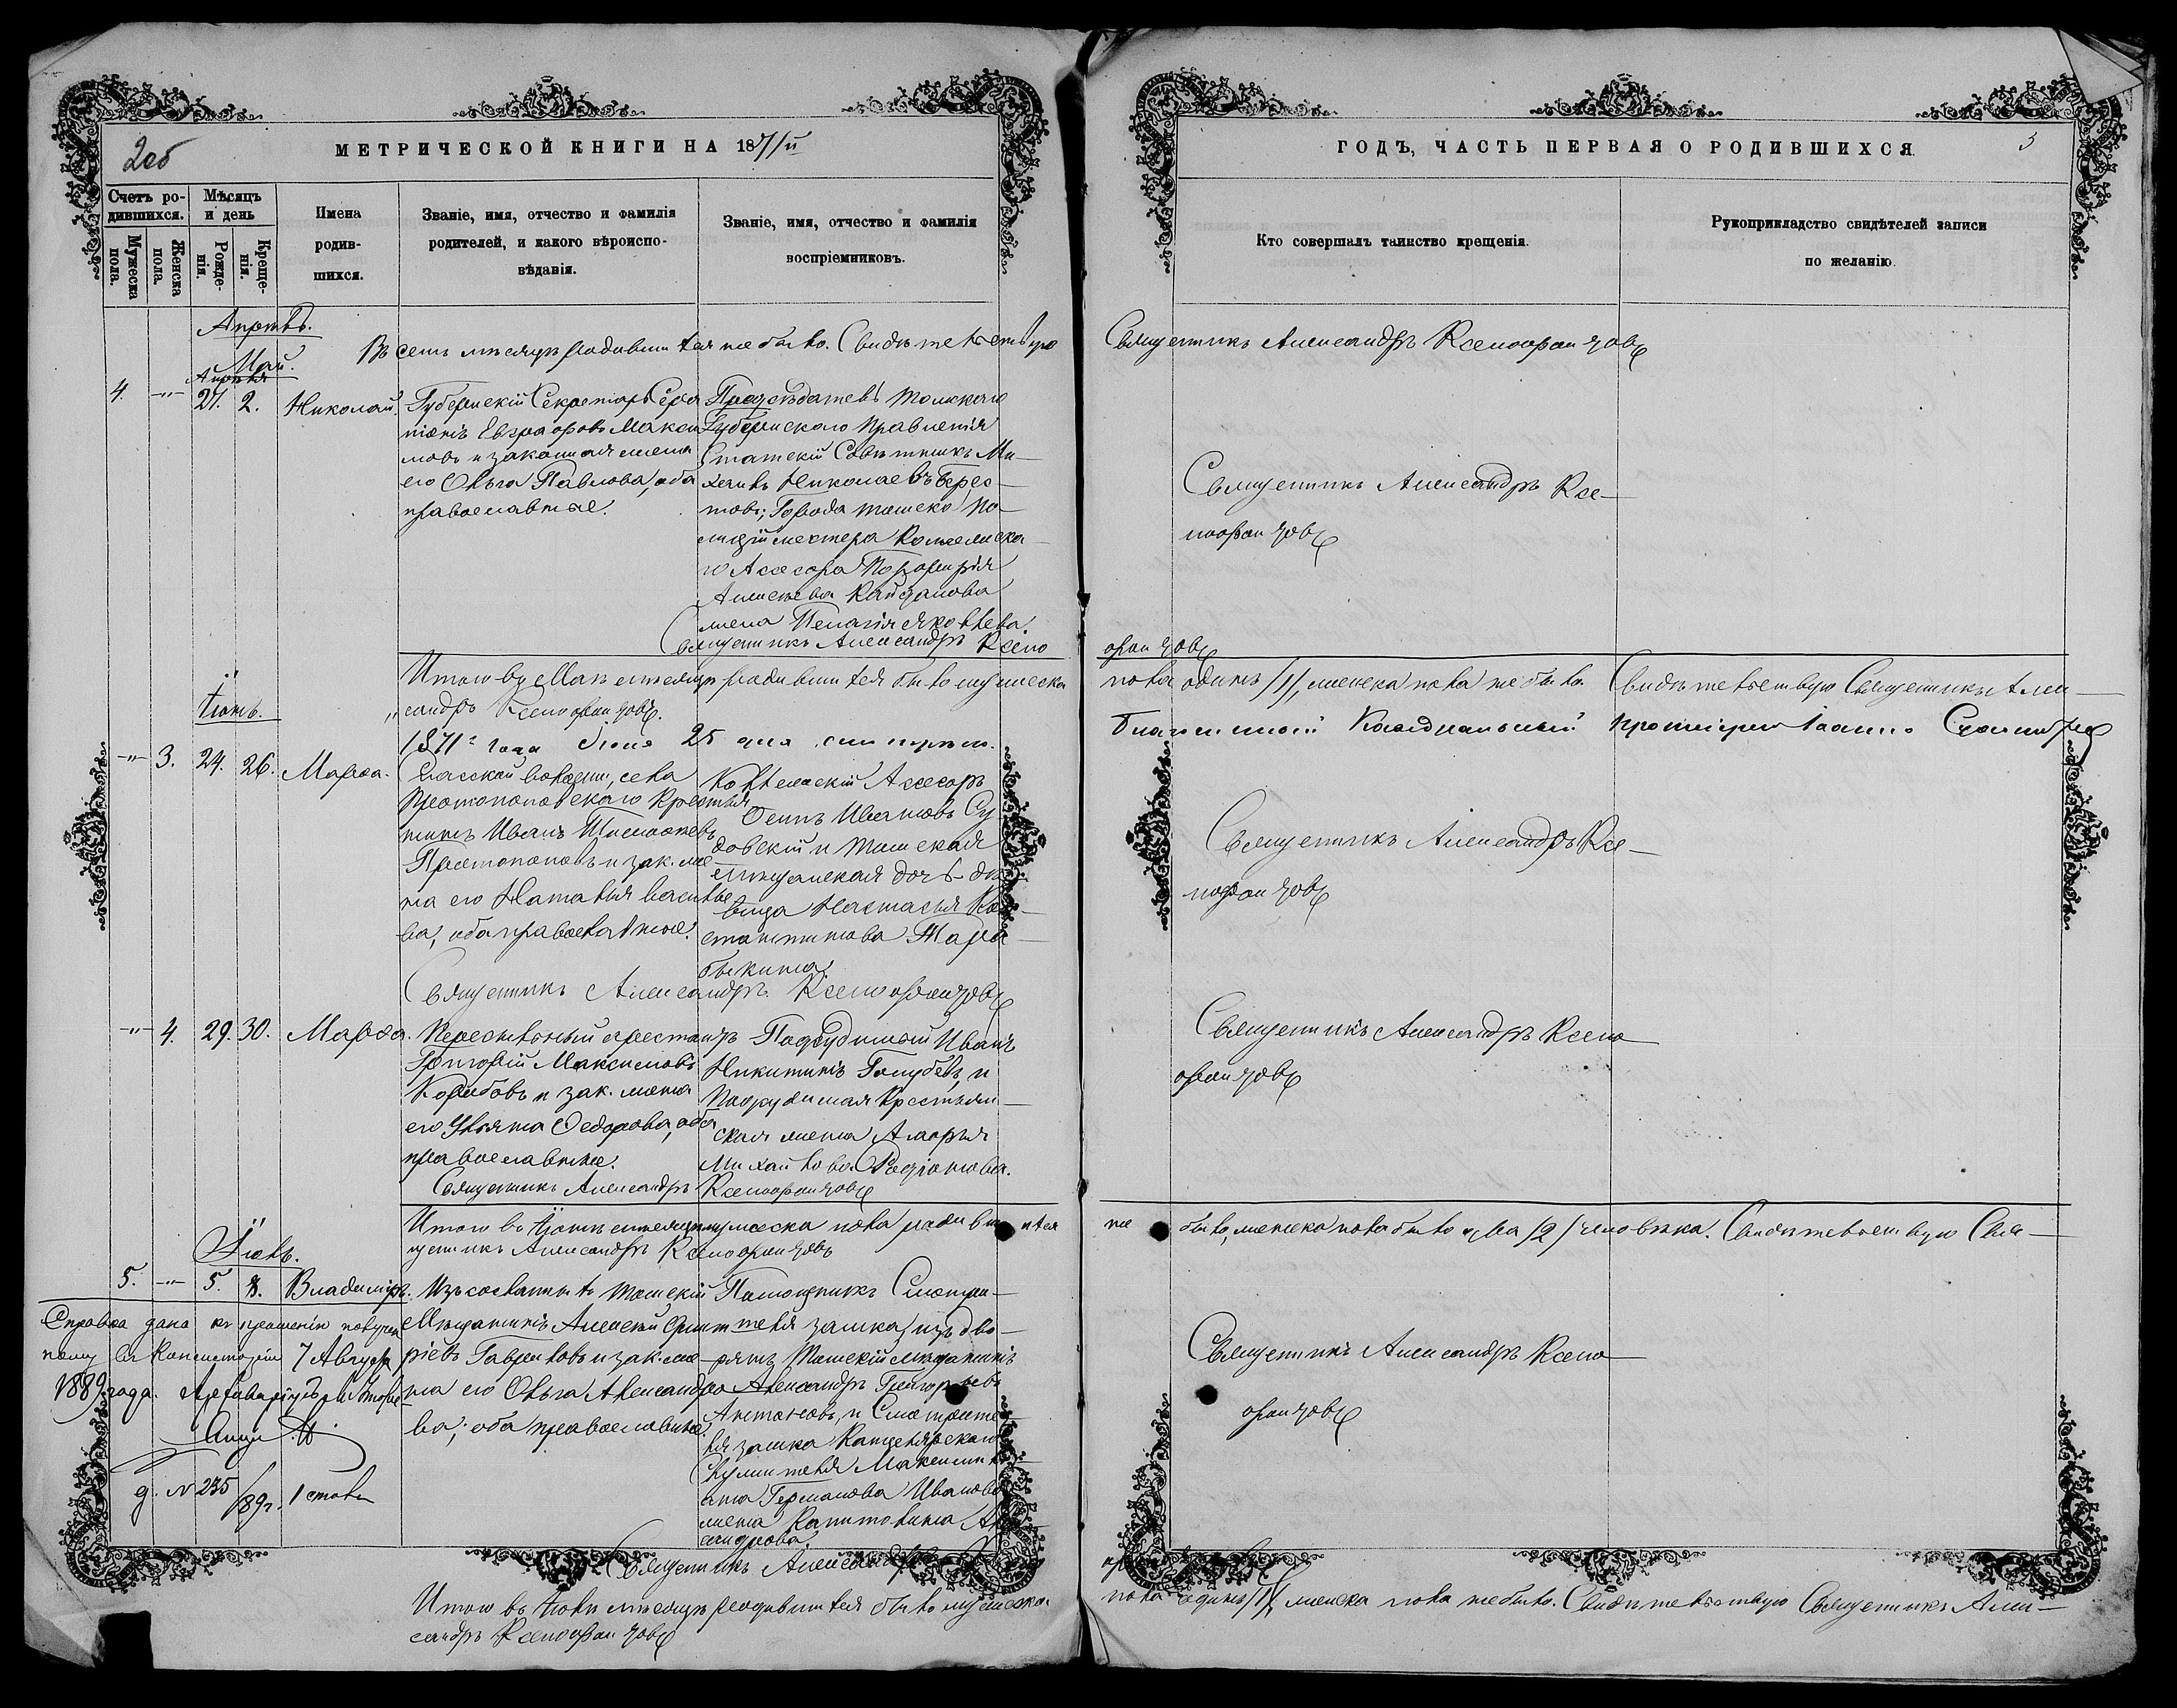 2об
МЕТРИЧЕСКОЙ КНИГИ НА 1871й
ГОДЪ, ЧАСТЬ ПЕРВАЯ О РОДИВШИХСЯ.
3
Счетъ родившихся.
Мужеска пола.
Женска пола.
Мѣсяцъ и день
Рожденія.
Крещенія.
Имена
родив-
шихся.
Званіе, имя, отчество и фамилія
родителей, и какого вѣроиспо-
вѣданія.
Званіе, имя, отчество и фамилія
воспріемниковъ.
Кто совершалъ таинство крещенія.
Рукоприкладство свидѣтелей записи
по желанію.
Апрѣль.
Въ семъ мѣсяцѣ родившихся не было. Свидѣтельствую Священникъ Александръ Ксенофонтовъ
Май.
Апрѣля
4. -"- 27. 2. Николай.
Губернскій Секретарь
Евграфовъ Макси
мовъ и законная жена
его Ольга Павлова, оба
православные.
Предсѣдатель Томскаго
Губернскаго Правленія
Статскій Совѣтникъ Ми-
хаилъ Николаевъ Берес-
товъ; Города Томска По-
лиціймейстера Коллежска-
го Асесора Порфирія
Алексѣева Кайданова
жена Пелагія Яковлева.
Священникъ Александръ Ксе-
нофонтовъ
Священникъ Александръ Ксено
фонтовъ
Итого въ Маѣ мѣсяцѣ родившихся было мужеска пола одинъ /1/, женска пола не было. Свидѣтельствую Священникъ Алек-
сандръ Ксенофонтовъ.
Іюнь.
1871 года Іюня 25 дня
Благочинный Каѳедральный Протоіерей Іоаннъ
-"- 3. 24. 26. Марѳа.
Спасской волости, села
Протопоповскаго Крестья
нинъ Иванъ
Протопоповъ и зак. же-
на его Наталья Василье
ва, оба православные.
Коллежскій Асесоръ
Осипъ Ивановъ Су
довскій и Томская
мѣщанская дочь дѣ
вица Настасья Кон-
стантинова Тара
быкина.
Священникъ Александръ Ксе-
нофонтовъ
Священникъ Александръ Ксенофонтовъ
-"- 4. 29. 30. Марѳа.
Пересыльный арестантъ
Григорій Максимовъ
Коробовъ и зак. жена
его Ульяна Ѳедорова, оба
православные.
Подсудимый Иванъ
Никитинъ Голубевъ, и
Подсудимая Крестьян-
ская жена Марья
Михайлова Родіонова.
Священникъ Александръ Ксено
фонтовъ
Священникъ Александръ Ксенофонтовъ
Итого въ Іюнѣ мѣсяцѣ мужеска пола родившихся не было, женска пола было два /2/ человѣка. Свидѣтельствую Свя-
щенникъ Александръ Ксенофонтовъ
Іюль.
5. -"- 5. 8. Владиміръ.
Изъ сосланныхъ Томскій
Мѣщанинъ Алексѣй Григо
рьевъ Гавриловъ и зак. же-
на его Ольга Александро
ва; оба православные.
Помощникъ Смотри-
теля замка, изъ дво-
рянъ Томскій мѣщанинъ
Александръ Григорьевъ
Антоновъ, и Смотрите-
ля замка Канцелярскаго
Служителя Максимилі
ана Германова Иванова
жена Капитолина Алек
сандрова.
Священникъ Александръ Ксено
фонтовъ
Справка дана къ прошенію получен
ному въ Консисторіи 7 Августа
1889 года.
д. № 235/89г. 1 столъ
Священникъ Александръ
Итого въ Іюлѣ мѣсяцѣ родившихся было мужеска пола одинъ /1/, женска пола не было. Свидѣтельствую Священникъ Алек-
сандръ Ксенофонтовъ